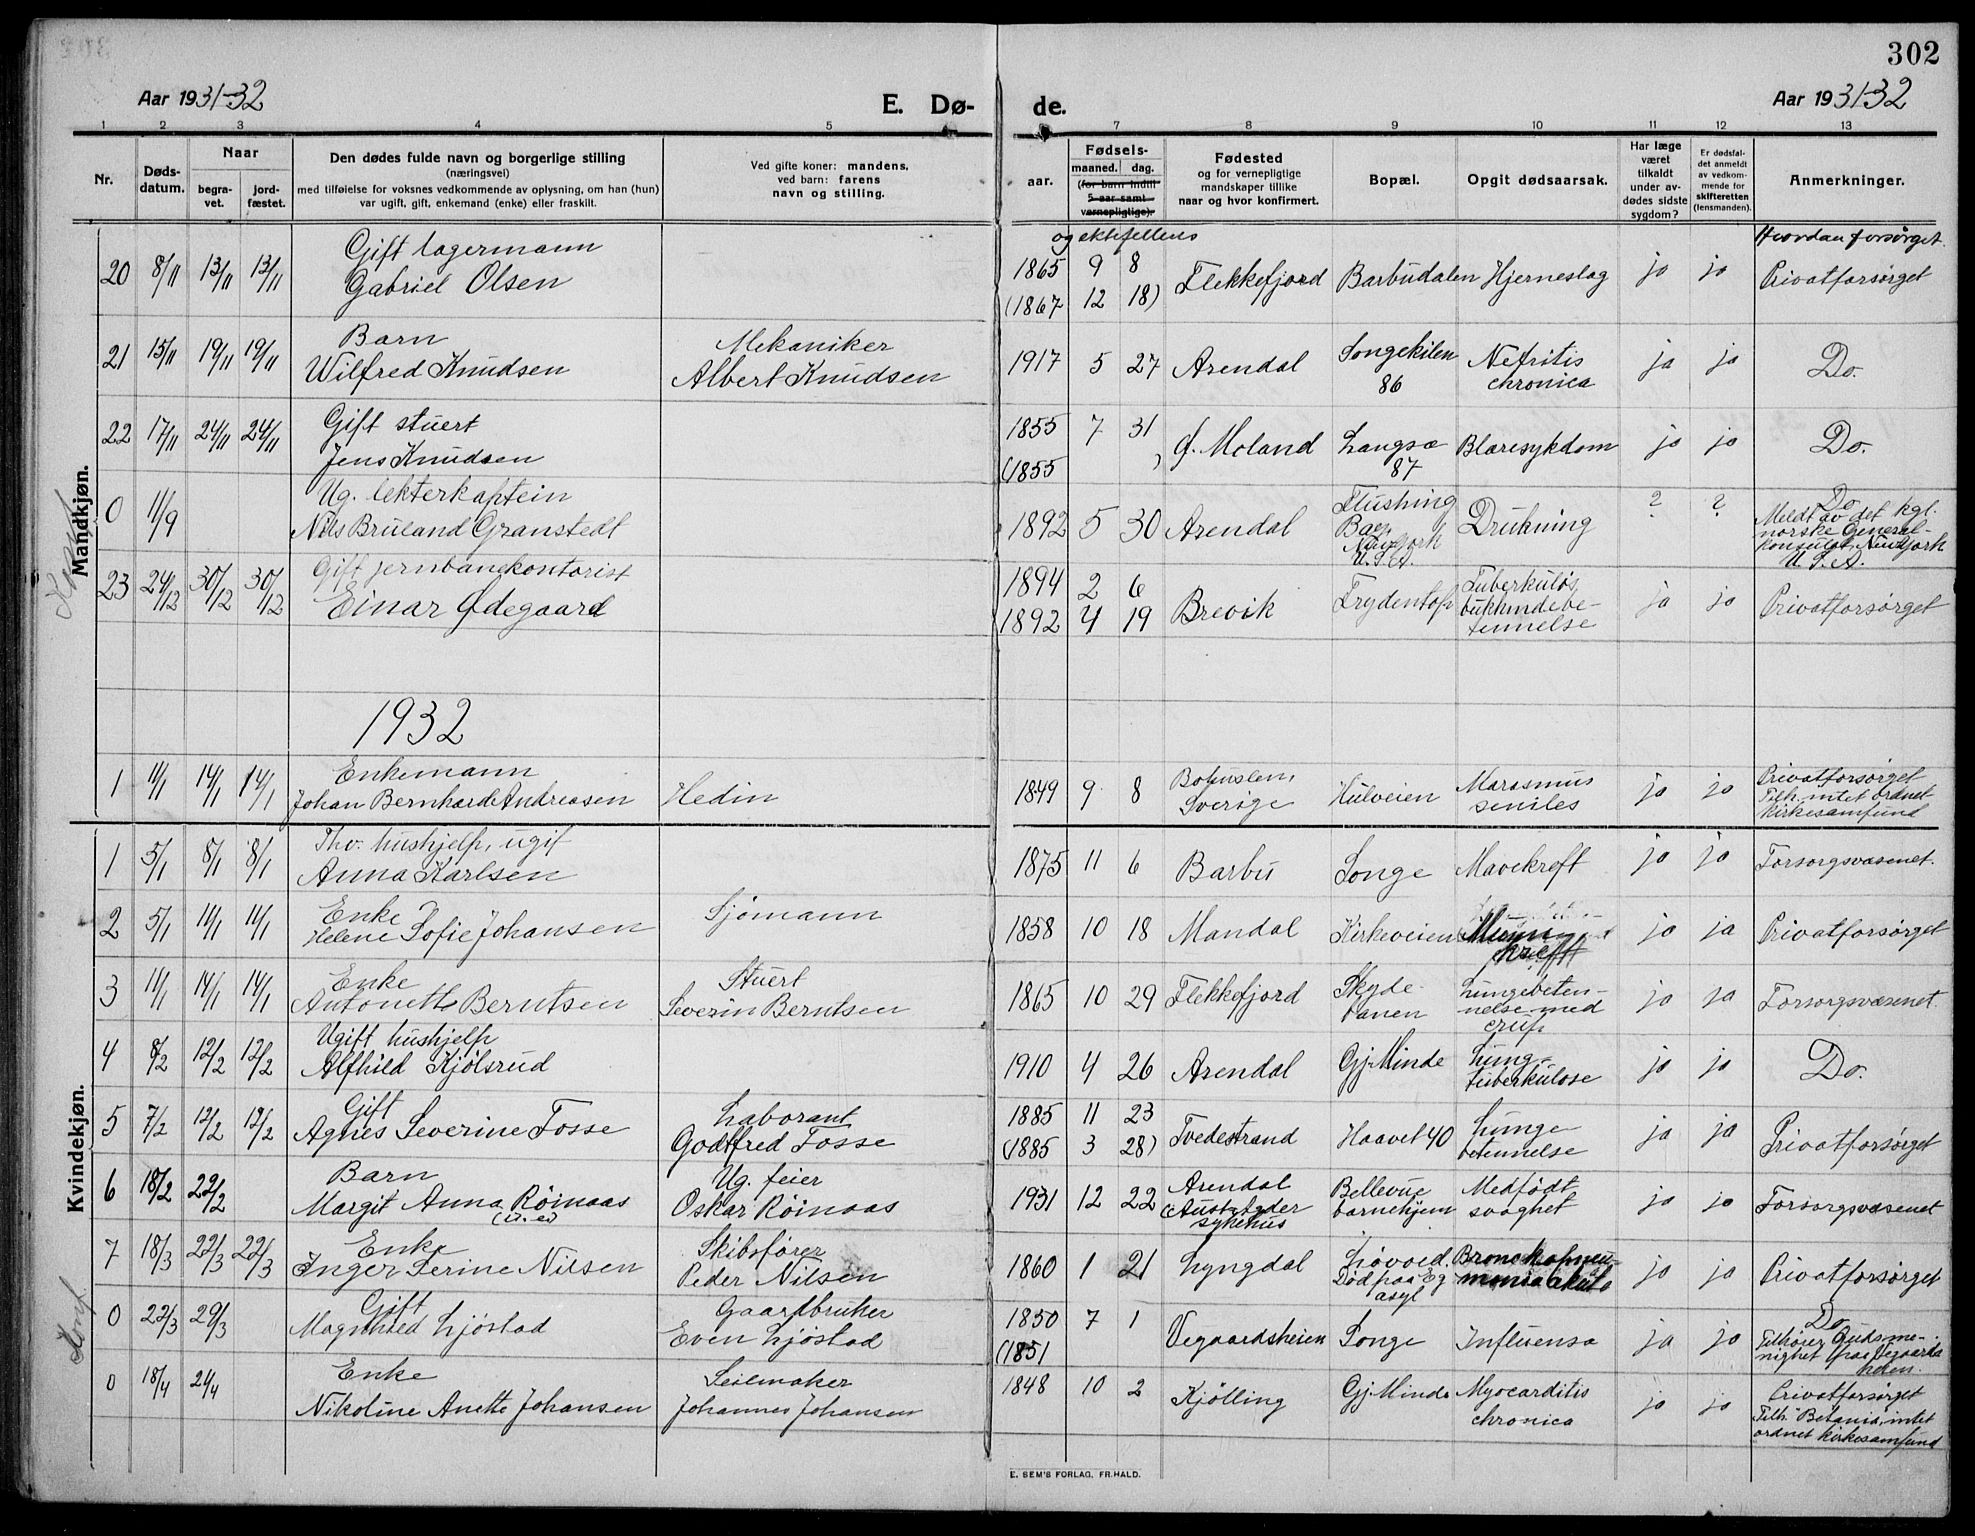 302
Aar 1931-32
E. Dø-
de.
Aar 1931-32
1 2 3 4 5
7 8 9 10 11 12 13
Nr.
Døds-
datum.
Naar
begra-
vet.
jord-
fæstet.
Den dødes fulde navn og borgerlige stilling
(næringsvei)
med tilføielse for voksnes vedkommende av oplysning, om han (hun)
var ugift, gift, enkemand (enke) eller fraskilt.
Ved gifte koner: mandens,
ved barn: farens
navn og stilling.
aar.
Fødsels-
maaned. dag.
(for barn indtil
5 aar samt
vernepligtige).
Fødested
og for vernepligtige
mandskaper tillike
naar og hvor konfirmert.
Bopæl.
Opgit dødsaarsak.
Har læge
været
tilkaldt
under av-
dødes sidste
sygdom?
Er dødsfal-
det anmeldt
av vedkom-
mende for
skifteretten
(lensmanden).
Anmerkninger.
og ektefellens
Hvordan forsørget.
Mandkjøn.
20 8/11 13/11 13/11 Gift lagermann
Gabriel Olsen
1865 9 8 Flekkefjord Barbudalen Hjerneslag ja ja Privatforsørget
(1867 12 18)
21 15/11 19/11 19/11 Barn
Wilfred Knudsen
Mekaniker
Albert Knudsen
1917 5 27 Arendal Songekilen
86
Nefritis
chronica
ja ja Do.
22 17/11 24/11 24/11 Gift stuert
Jens Knudsen
1855 7 31
(1855 )
Ø. Moland Langsæ
87
Blæresykdom ja ja Do.
0 11/9 Ug. lekterkaptein
Nils Bruland Granstedt
1892 5 30 Arendal Flushing
Bay
New York
U.S.A.
Drukning ? ? Do
Meldt av det kgl.
norske General-
konsulat, New York
U.S.A.
23 24/12 30/12 30/12 Gift jernbanekontorist
Einar Ødegaard
1894 2 6
1892 4 19
Brevik Frydentop Tuberkuløs
bukhindebe-
tennelse
ja ja Privatforsørget
1932
1 11/1 14/1 14/1 Enkemann
Johan Bernhard Andreasen
Hedin
1849 9 8 Bohuslen,
Sverige
Hulveien Marasmus
seniles
ja ja Privatforsørget
Tilh. intet ordnet
kirkesamfund
Kvindekjøn.
1 5/1 8/1 8/1 Thv. hushjelp, ugif
Anna Karlsen
1875 11 6 Barbu Songe Mavekreft ja ja Forsorgsvæsenet.
2 5/1 11/1 11/1 Enke
Helene Sofie Johansen
Sjömann
1858 10 18 Mandal Kirkeveien kreft ja ja Privatforsørget
3 11/1 14/1 14/1 Enke
Antonette Berntsen
Stuert
Severin Berntsen
1865 10 29 Flekkefjord Skyde-
banen
Lungebeten-
nelse med
crup
ja ja Forsorgsvæsenet.
4 8/2 12/2 12/2 Ugift hushjelp
Alfhild Kjölsrud
1910 4 26 Arendal Gj. Minde Lung-
tuberkulose
ja ja Do.
5 7/2 12/2 12/2 Gift
Agnes Severine Fosse
Laborant
Godtfred Fosse
1885 11 23
(1885 3 28)
Tvedestrand Haavet 40 Lunge-
betennelse
ja ja Privatforsørget
6 18/2 22/2 Barn
Margit Anna Röinaas
(u. e.)
Ug. feier
Oskar Röinaas
1931 12 22 Arendal
(Austagder
sykehus
Bellevue
barnehjem
Medfödt
svaghet
ja ja Forsorgsvæsenet
7 18/3 22/3 22/3 Enke
Inger Serine Nilsen
Skibsfører
Peder Nilsen
1860 1 21 Lyngdal Lövold,
Död paa Eg
asyl
Bronchopneu-
monia akuta
ja ja Privatforsørget
0 22/3 29/3 Gift
Magnhild Ljöstad
Gaardbruker
Even Ljöstad
1850 7 1
(1851
Vegaardsheien Songe Influensa ja ja Do.
Tilhører Gudsme-
nighet paa Vegaards
heien.
0 18/4 21/4 Enke
Nikoline Anette Johansen
Seilmaker
Johannes Johansen
1848 10 2 Kjölling Gj. Minde Myocarditis
chronica
ja ja Privatforsørget
Tilh. Betania, intet
ordnet kirkesamfund
E. SEM'S FORLAG, FR.HALD.